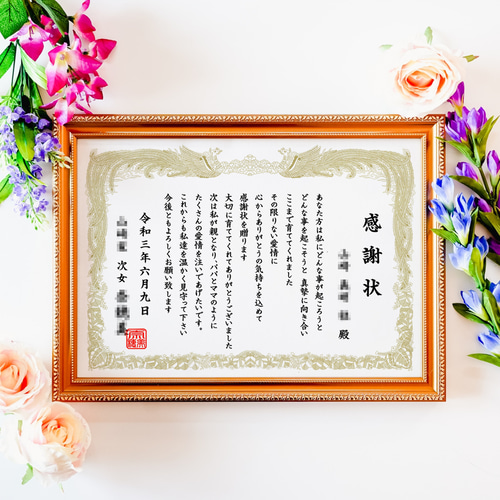 感謝状
殿
あなた方は私にどんな事が起ころうと
どんな事を起こそうと 真摯に向き合い
ここまで育ててくれました
その限りない愛情に
心からありがとうの気持ちを込めて
感謝状を贈ります
大切に育ててくれてありがとうございました
次は私が親となり、パパとママのように
たくさんの愛情を注いであげたいです。
これからも私達を温かく見守って下さい
今後ともよろしくお願い致します
令和三年六月九日
次女